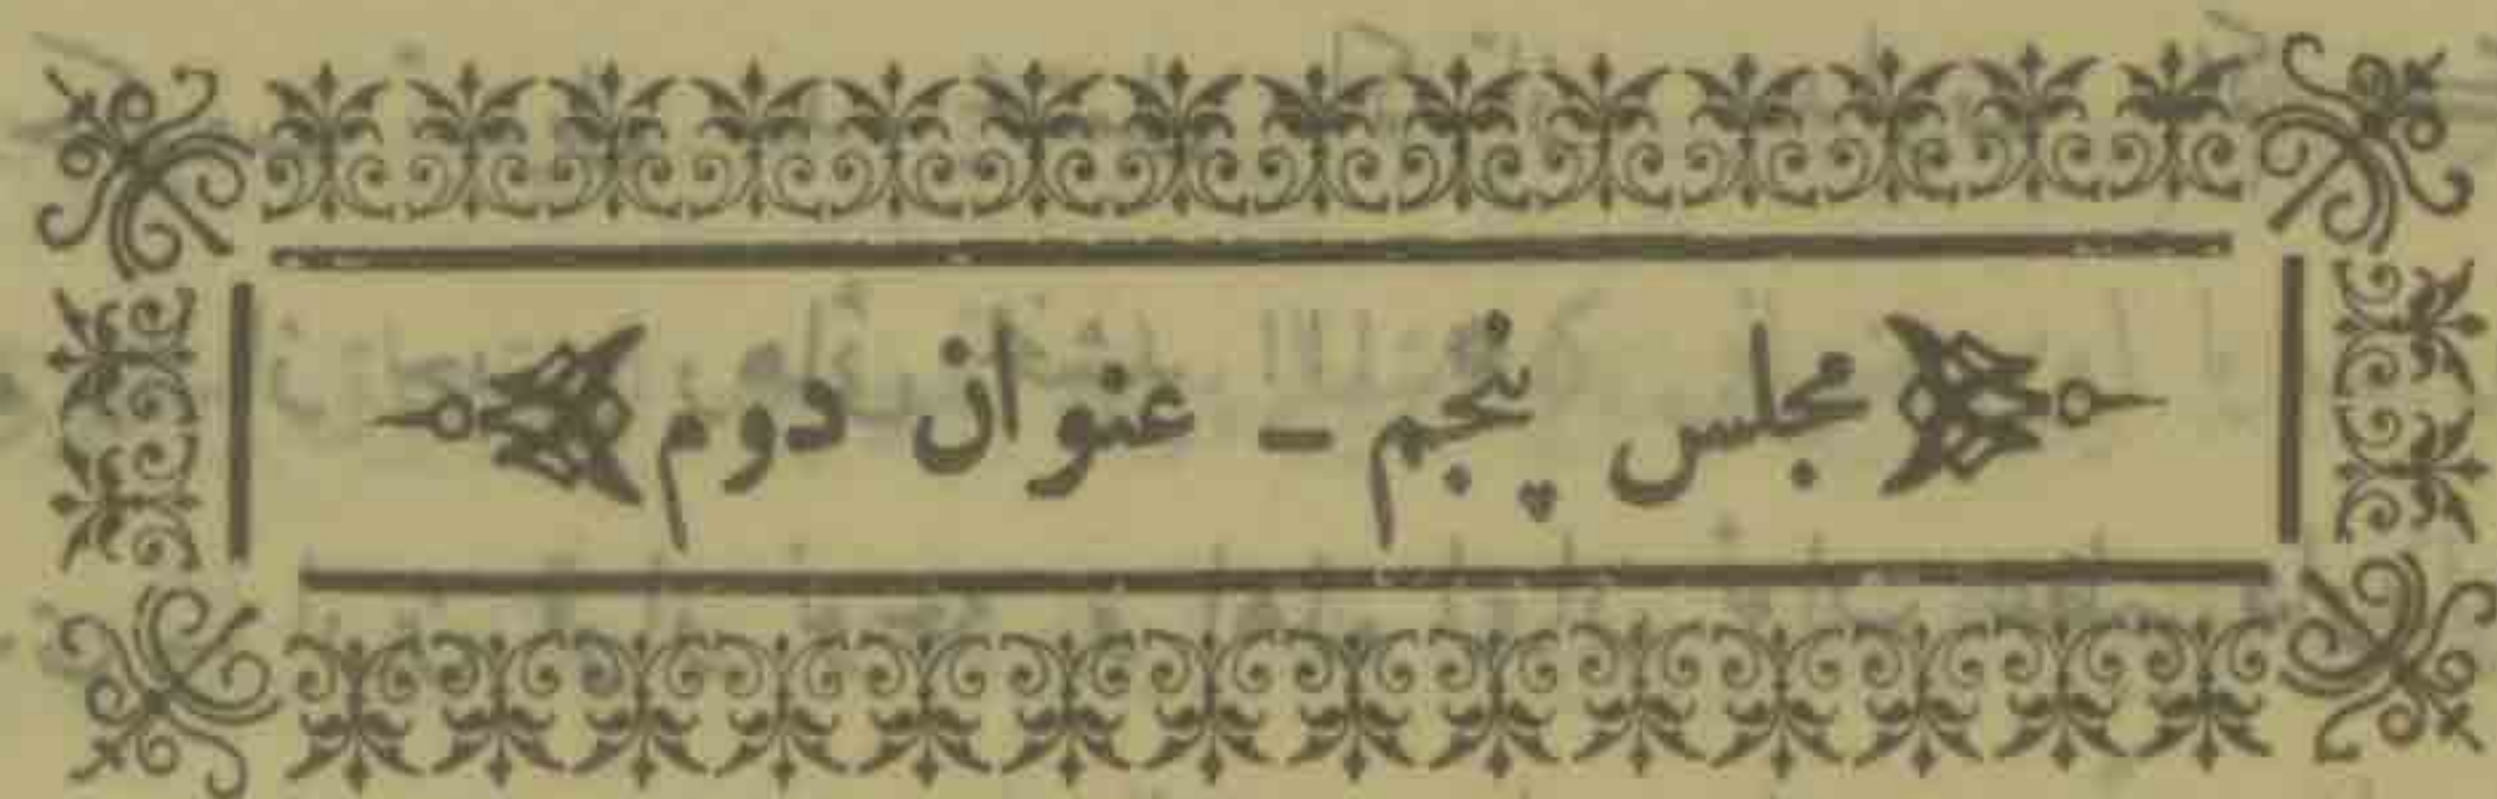 مجلس پنجم - عنوان دوم